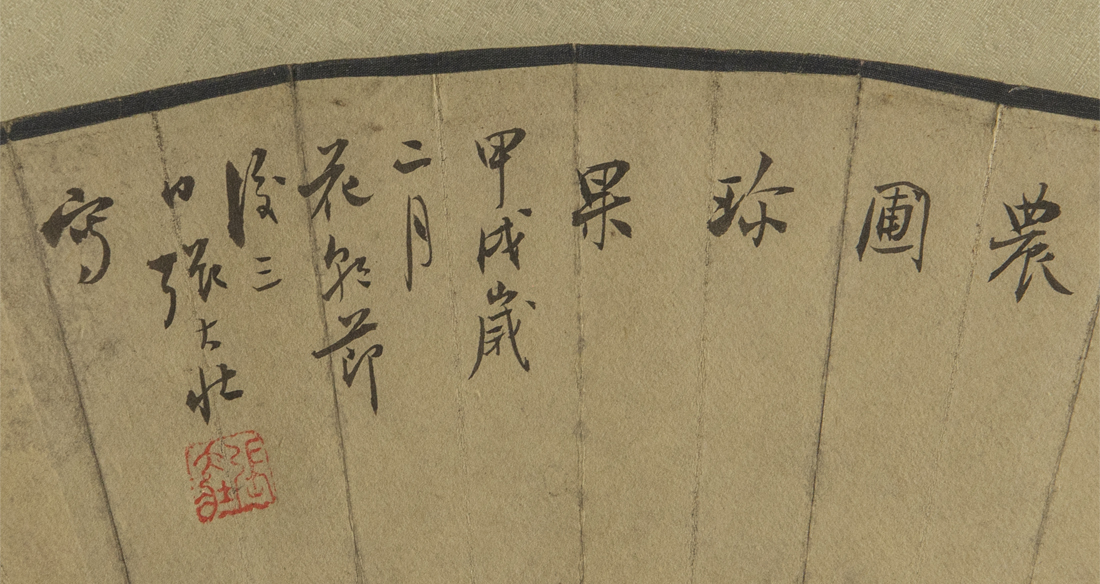 農
圃
珎
果
甲戌歲
二月
花朝節
後三
日張大壯
寫
張大壯